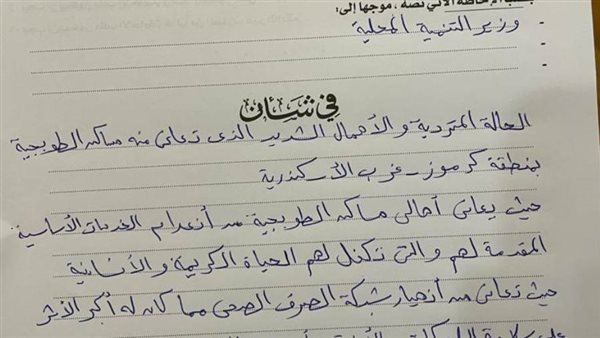 بطلب الإحاطة الآتي نصه ، موجها إلى:
- وزير التنمية المحلية
-
-
في شأن
الحالة المتردية والأهمال الشديد الذى تعانى منه مساكن الطوبجية
بمنطقة كرموز - غرب الأسكندرية
حيث يعانى أهالى مساكن الطوبجية من أنعدام الخدمات الأساسية
المقدمة لهم والتى تكفل لهم الحياة الكريمة والأنسانية
حيث تعانى من أنهيار شبكة الصرف الصحى مما كان له أكبر الأثر
على سلامة